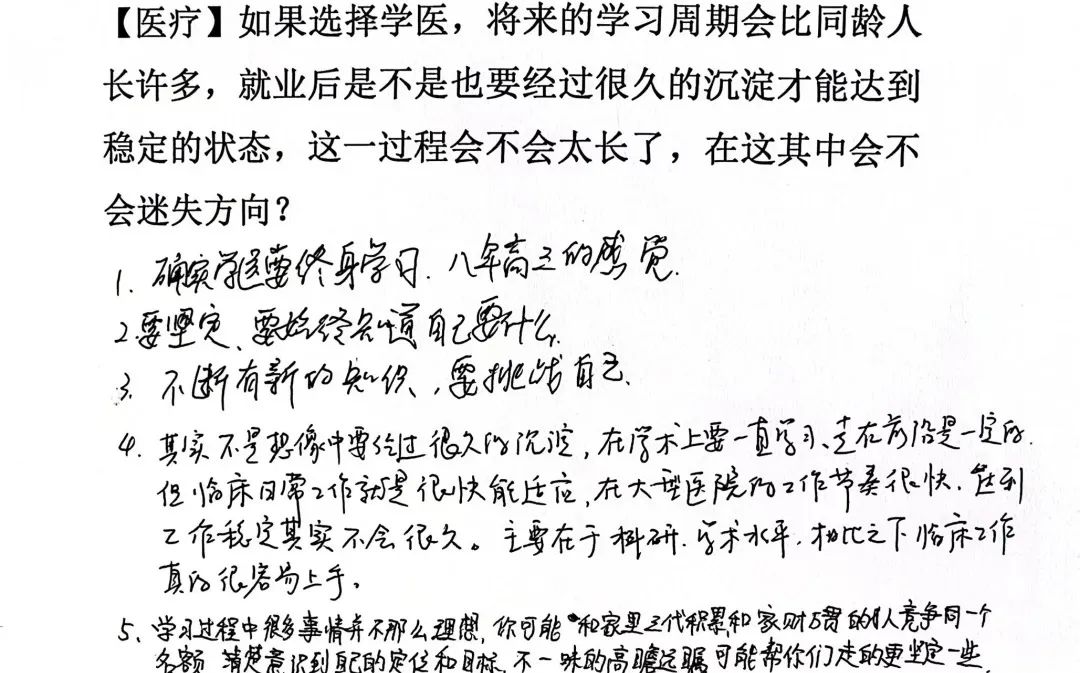 【医疗】如果选择学医，将来的学习周期会比同龄人
长许多，就业后是不是也要经过很久的沉淀才能达到
稳定的状态，这一过程会不会太长了，在这其中会不
会迷失方向？
1. 确实学医要终身学习. 八年高三的感觉.
2. 要坚定、要始终知道自己要什么.
3. 不断有新的知识、要挑战自己.
4. 其实不是想像中要经过很久的沉淀，在学术上要一直学习、走在前沿是一定的.
但临床日常工作就是很快能适应，在大型医院的工作节奏很快. 达到
工作稳定其实不会很久。主要在于科研、学术水平，相比之下临床工作
真的很容易上手。
5、学习过程中很多事情并不那么理想，你可能和家里三代积累和家财万贯的人竞争同一个
名额 清楚意识到自己的定位和目标，不一味的高瞻远瞩可能帮你们走的更坚定一些.